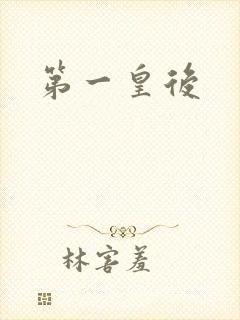 第一皇後
林害羞